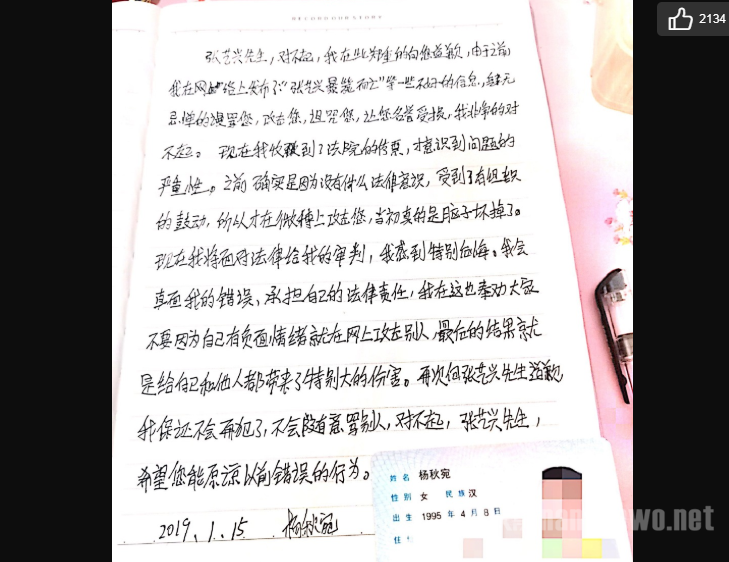 2134
RECORD OUR STORY
张艺兴先生，对不起，我在此郑重的向您道歉，由于之前
我在网络上发布了“张艺兴暴毙而亡”等一些不好的信息，肆无
忌惮的谩骂您，攻击您，诅咒您，让您名誉受损，我非常的对
不起。现在我收到了法院的传票，才意识到问题的
严重性。之前确实是因为没有什么法律意识，受到了有组织
的鼓动，所以才在微博上攻击您，当初真的是脑子坏掉了。
现在我将面对法律给我的审判，我感到特别后悔。我会
直面我的错误、承担自己的法律责任，我在这也奉劝大家
不要因为自己有负面情绪就在网上攻击别人，最后的结果就
是给自己和他人都带来了特别大的伤害。再次向张艺兴先生道歉
我保证不会再犯了，不会随意骂别人，对不起，张艺兴先生，
希望您能原谅以前错误的行为。
2019、1、15 杨秋宛
姓名 杨秋宛
性别 女 民族 汉
出生 1995 年 4 月 8 日
住
wo.net